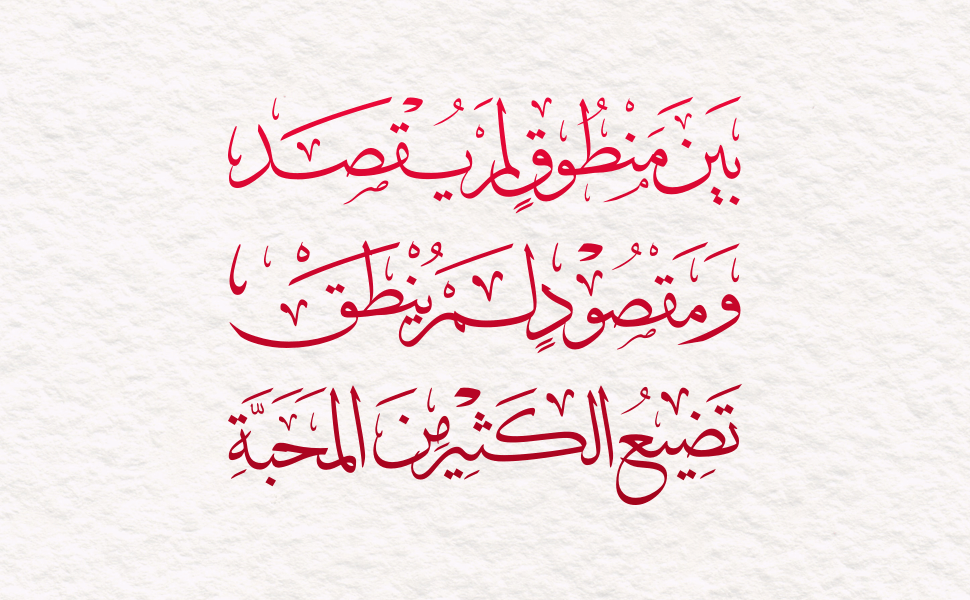 بَين مَنْطُوقٍ لم يُقْصَد
وَمَقْصُودٍ لَم يُنْطَقْ
تَضِيعُ الكَثِيرُ مِنَ المَحَبَّةِ